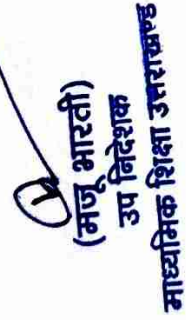 (मजू भारती)
उप निदेशक
माध्यमिक शिक्षा उत्तराखण्ड